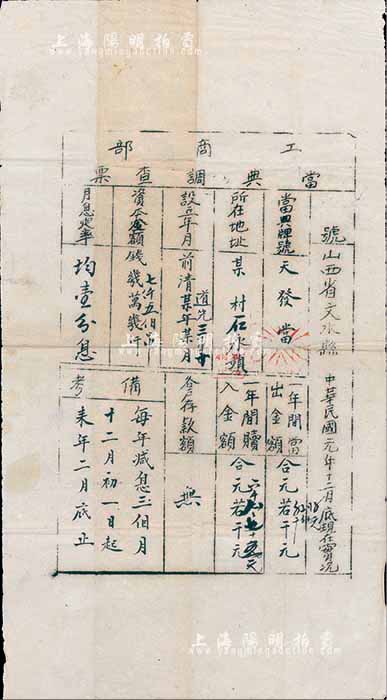 上海陽明拍賣
www.yangmingauction.com
工商部
當典調查票
號山西省文水縣 中華民國元年十二月底現在實況
當典牌號 天發當
一年間當出金額 合元若干元
所在地址 某村 石永鎮
一年間贖入金額 合元若干元
設立年月 前清某年某月 道光三十
存款額 無
資本金額 錢幾萬幾仟 七仟五伯
月息定率 均壹分息
備考 每年減息三個月
十二月初一日起
來年二月底止
上海陽明拍賣
www.yangmingauction.com